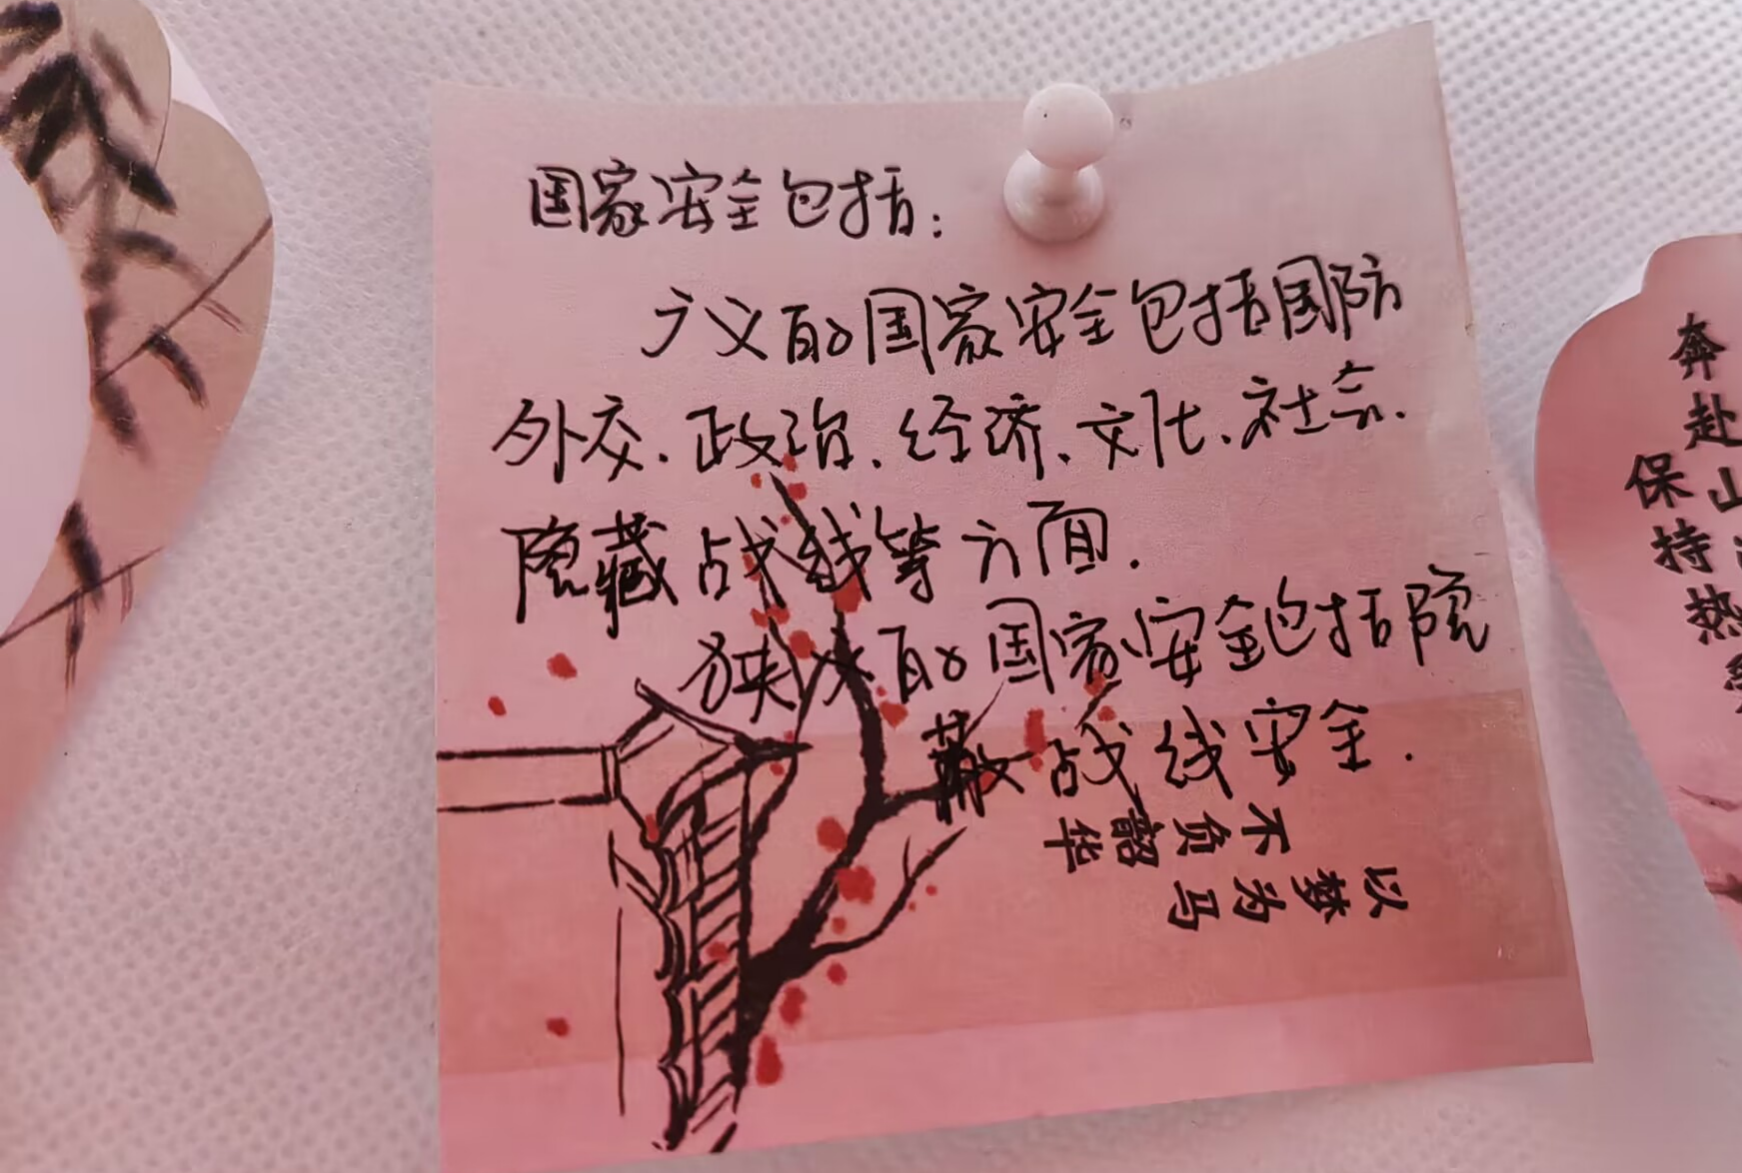 国家安全包括:
广义的国家安全包括国防
外交、政治、经济、文化、社会、
隐藏战线等方面.
狭义的国家安全包括隐
蔽战线安全.
不负韶华
以梦为马
奔赴山
保持热